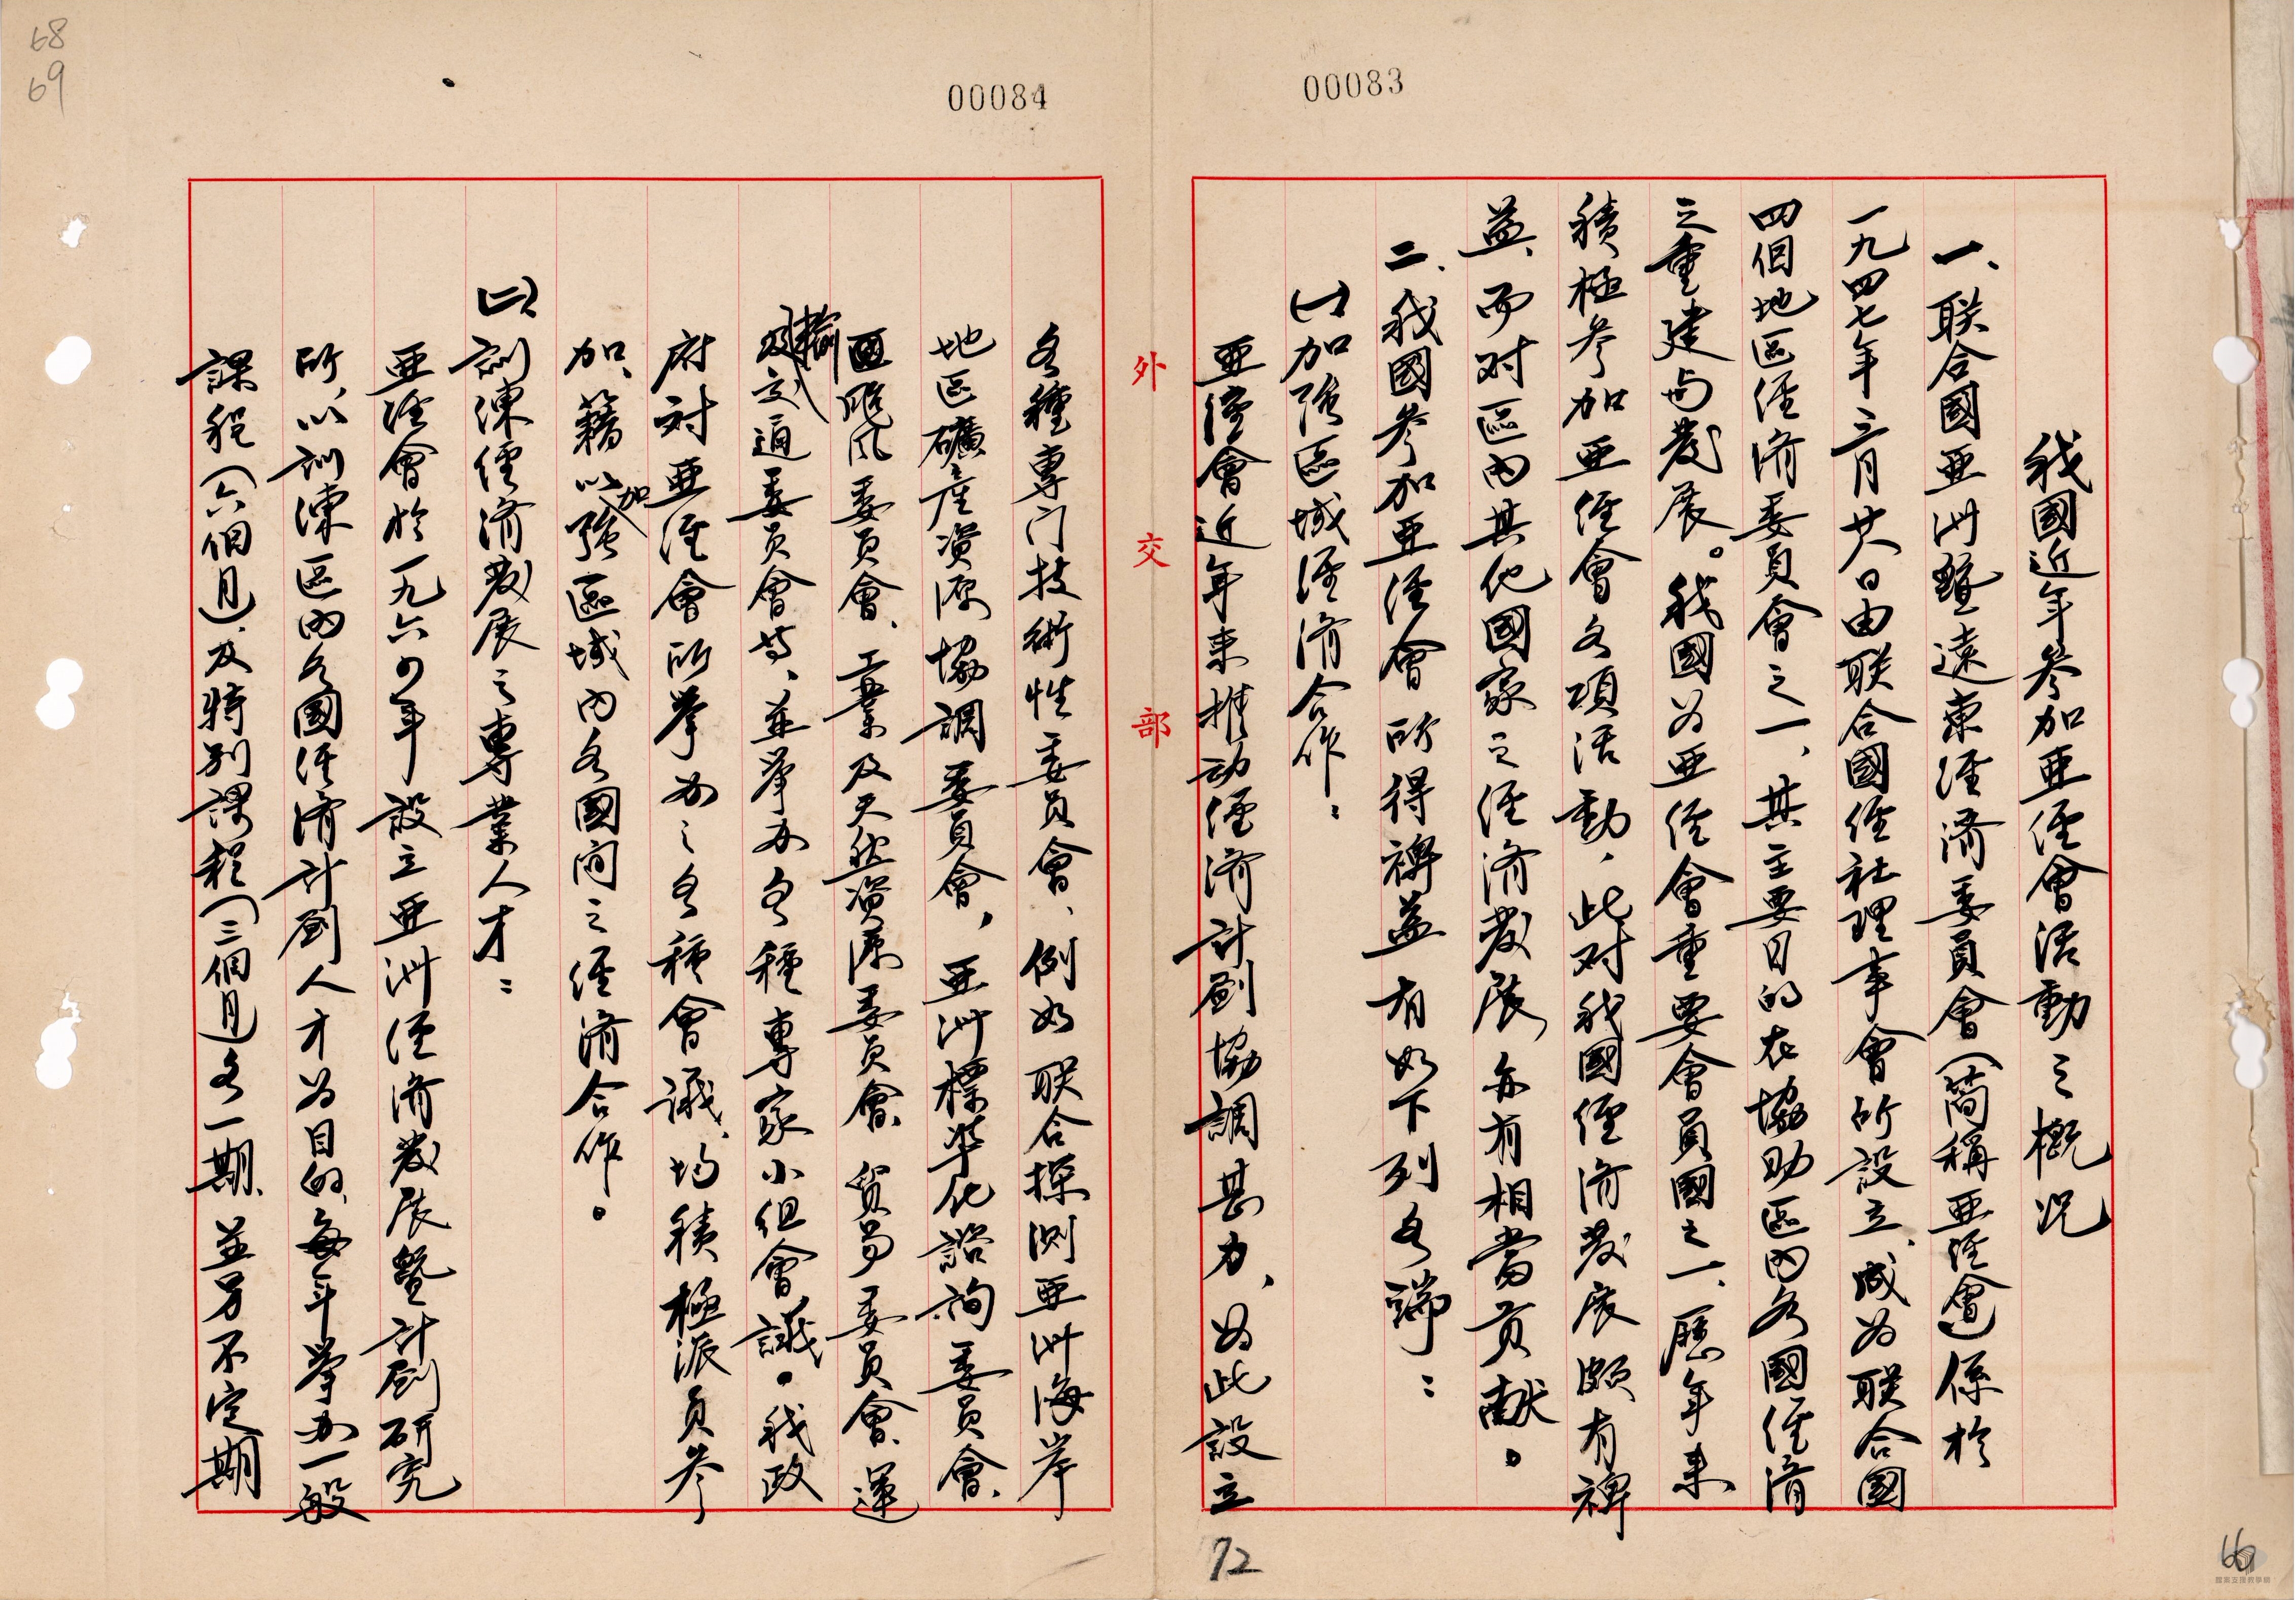 00083
我國近年參加亜經會活動之概况
一、联合國亜洲暨遠東經济委員會（简稱亜經會）係於
一九四七年三月廿八日由联合國經社理事會所設立、成為联合國
四個地区經济委員會之一、其主要目的在協助區内各國經济
之重建与發展。我國為亜經會重要會員國之一、歷年来
積極參加亜經會各項活動，此对我國經济發展頗有裨
益、而对區内其他國家之經济發展，亦有相當貢献。
二、我國參加亜經會所得裨益有如下列各端：
(一)加强區域經济合作：
亜經會近年来推动經济計劃協調甚力、為此設立
72
外交部
00084
各種專门技術性委員會、例如联合探测亜洲海岸
地区礦産資源協調委員會，亜洲標準化諮詢委員會、
颱风委員會、工業及天然資源委員會、貿易委員會、運
輸及交通委員會等、並举办各種專家小组會議。我政
府对亜經會所举办之各種會議、均積極派員參
加、藉以加强區域内各國间之經济合作。
(二)訓練經济發展之專業人才：
亜經會於一九六四年設立亜洲經济發展暨計劃研究
所、以訓練區内各國經济計劃人才為目的、每年举办一般
課程（六個月）及特别課程（三個月）各一期、並另不定期
68
69
66